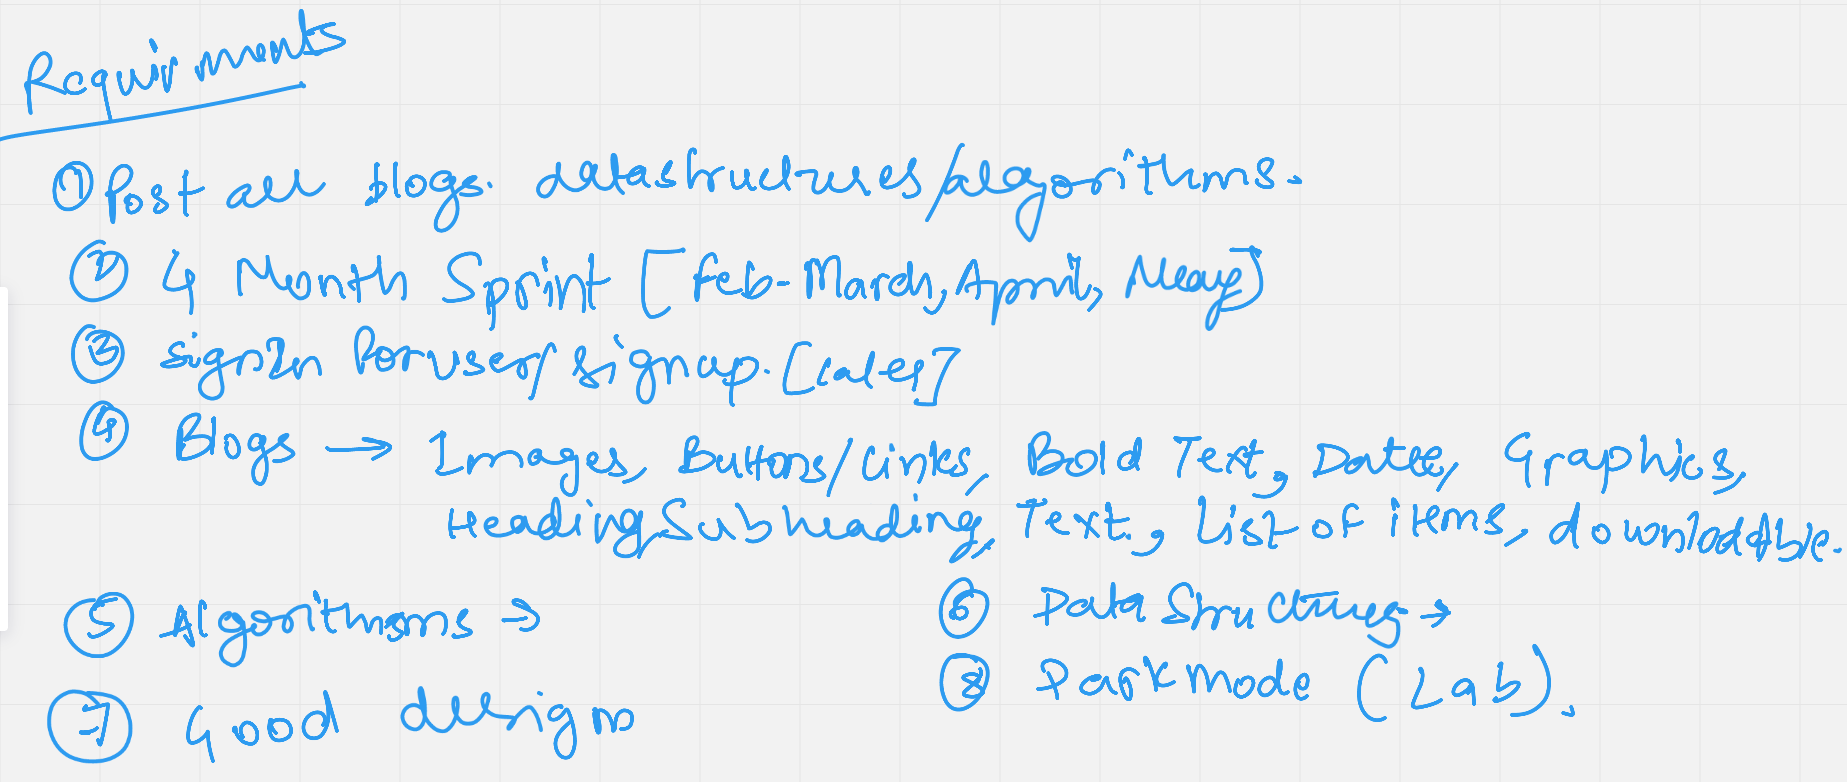 Requirments
① Post all blogs. datastructures/algorithms.
② 4 Month Sprint [Feb-March, April, May]
③ signIn for user/signup. [later]
④ Blogs → Images, Buttons/Links, Bold Text, Date, Graphics,
Heading, Subheading, Text, List of items, downloadable.
⑤ Algorithms →
⑥ Data Structures →
⑦ Good design
⑧ Dark mode (Lab).